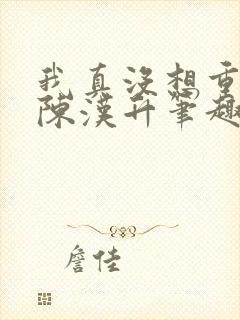 我真没想重
陈汉升笔趣
詹佳